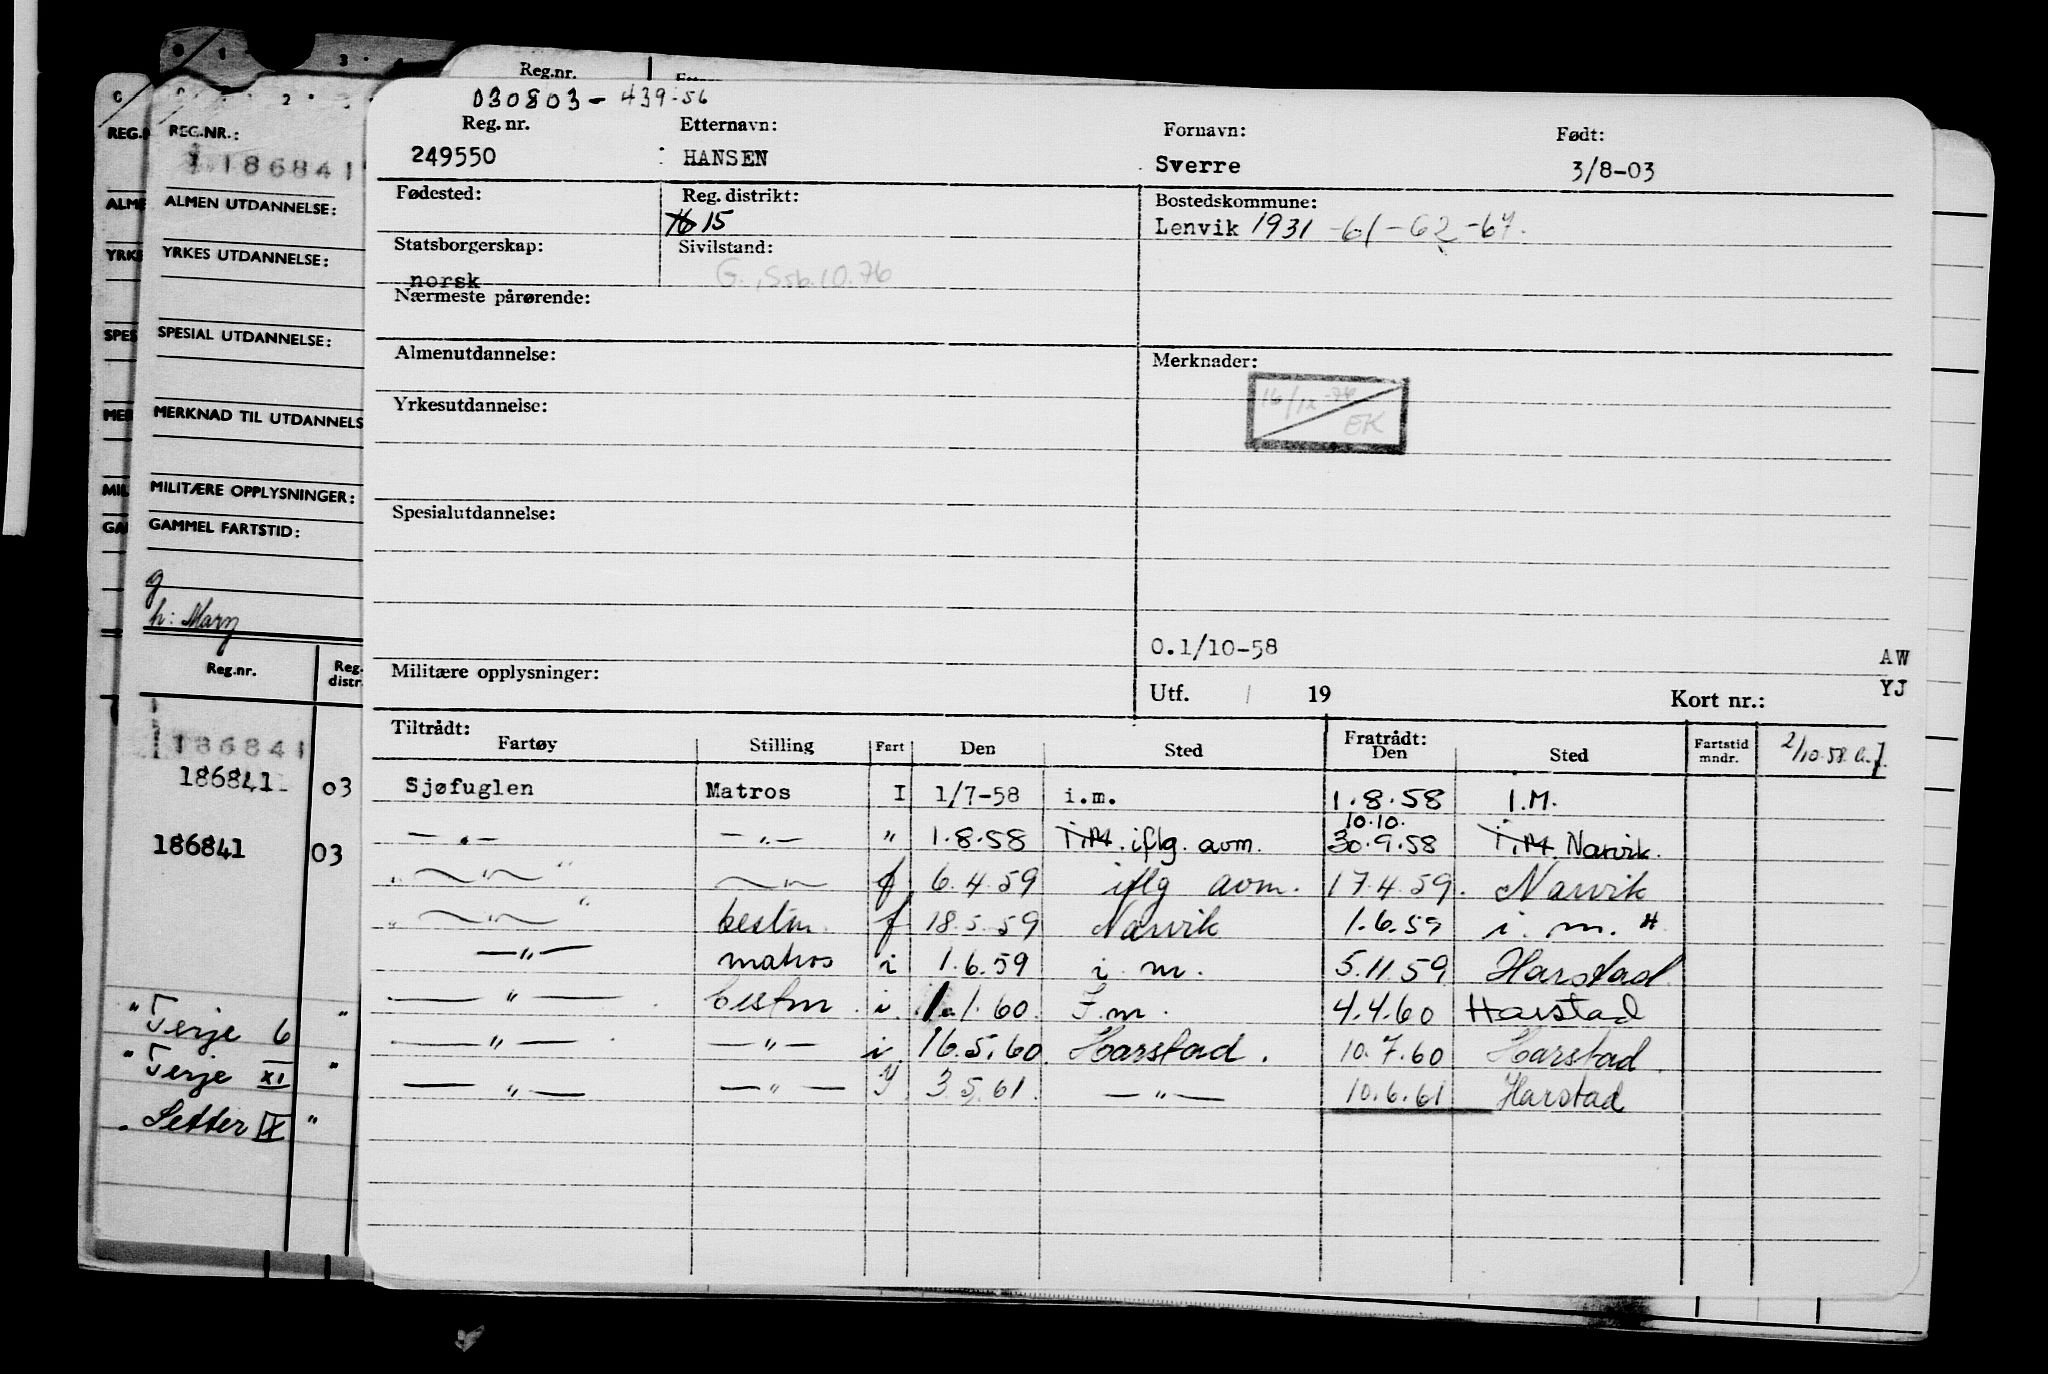 030803-439-56
Reg.nr.
Reg. nr. Etternavn: Fornavn: Født:
249550 HANSEN Sverre 3/8-03
Fødested: Reg. distrikt: Bostedskommune:
15 Lenvik 1931 -61-62-67.
Statsborgerskap: Sivilstand:
norsk G., Ssb.10.76
Nærmeste pårørende:
Almenutdannelse: Merknader:
16/12-74
EK
Yrkesutdannelse:
Spesialutdannelse:
O.1/10-58
AW
Militære opplysninger: Utf. / 19 Kort nr.: YJ
Tiltrådt: Fratrådt:
Fartøy Stilling Fart Den Sted Den Sted Fartstid mndr. 2/10.58
Sjøfuglen Matros I 1/7-58 i.m. 1.8.58 I.M.
10.10.
—„— —„— " 1.8.58 I.M. iflg. avm. 30.9.58 I.M. Narvik.
—"— —"— f 6.4.59 iflg avm. 17.4.59. Narvik
—"— bestm. f 18.5.59 Narvik 1.6.59 i. m. "
—"— matros i 1.6.59 i m. 5.11.59 Harstad
—"— bestm i. 1.1.60. I.m. 4.4.60 Harstad
—"— —"— i. 16.5.60. Harstad. 10.7.60 Harstad.
—"— —"— Y 3.5.61. —"— 10.6.61 Harstad
REG.NR.:
186841
ALMEN UTDANNELSE:
YRKES UTDANNELSE:
SPESIAL UTDANNELSE:
MERKNAD TIL UTDANNELS
MILITÆRE OPPLYSNINGER:
GAMMEL FARTSTID:
g
h: Mary
Reg.nr. Reg. distr.
186841
186841 03
186841 03
" Terje 6 "
" Terje XI "
. Setter IX "
REG.
ALME
YRKE
SPES
MER
MIL
GA